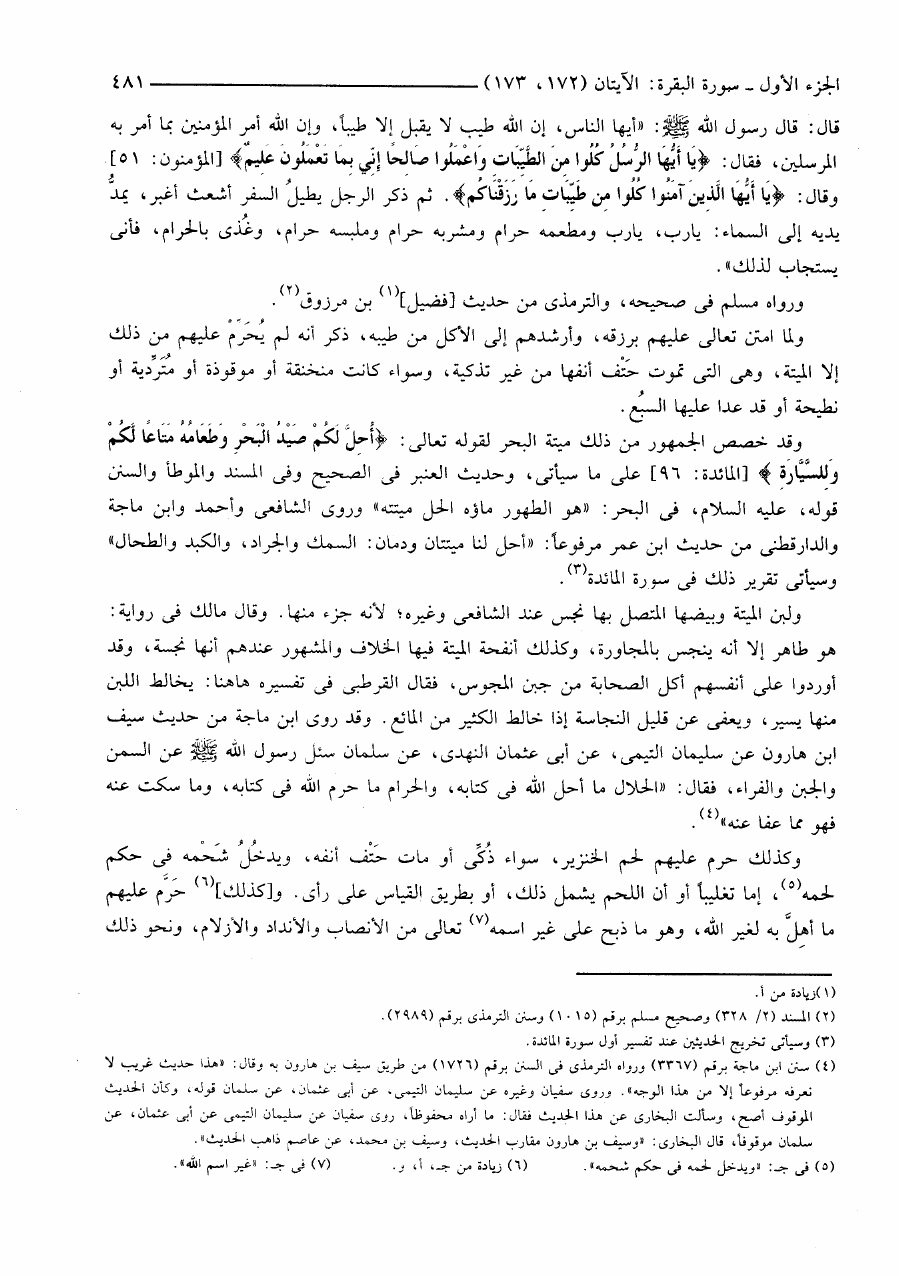 الجزء الأول ـ سورة البقرة: الآيتان (١٧٢، ١٧٣) ٤٨١
قال: قال رسول الله ﷺ: «أيها الناس، إن الله طيب لا يقبل إلا طيباً، وإن الله أمر المؤمنين بما أمر به
المرسلين، فقال: ﴿يَا أَيُّهَا الرُّسُلُ كُلُوا مِنَ الطَّيِّبَاتِ وَاعْمَلُوا صَالِحًا إِنِّي بِمَا تَعْمَلُونَ عَلِيمٌ﴾ [المؤمنون: ٥١]
وقال: ﴿يَا أَيُّهَا الَّذِينَ آمَنُوا كُلُوا مِن طَيِّبَاتِ مَا رَزَقْنَاكُم﴾. ثم ذكر الرجل يطيلُ السفر أشعث أغبر، يمدُّ
يديه إلى السماء: يارب، يارب ومطعمه حرام ومشربه حرام وملبسه حرام، وغُذى بالحرام، فأنى
يستجاب لذلك».
ورواه مسلم فى صحيحه، والترمذى من حديث [فضيل](١) بن مرزوق(٢).
ولما امتن تعالى عليهم برزقه، وأرشدهم إلى الأكل من طيبه، ذكر أنه لم يُحَرَمْ عليهم من ذلك
إلا الميتة، وهى التى تموت حتْف أنفها من غير تذكية، وسواء كانت منخنقة أو موقوذة أو مُتَردِّية أو
نطيحة أو قد عدا عليها السبُع.
وقد خصص الجمهور من ذلك ميتة البحر لقوله تعالى: ﴿أُحِلَّ لَكُمْ صَيْدُ الْبَحْرِ وَطَعَامُهُ مَتَاعًا لَّكُمْ
وَلِلسَّيَّارَةِ﴾ [المائدة: ٩٦] على ما سيأتى، وحديث العنبر فى الصحيح وفى المسند والموطأ والسنن
قوله، عليه السلام، فى البحر: «هو الطهور ماؤه الحل ميتته» وروى الشافعى وأحمد وابن ماجة
والدارقطنى من حديث ابن عمر مرفوعاً: «أحل لنا ميتتان ودمان: السمك والجراد، والكبد والطحال»
وسيأتى تقرير ذلك فى سورة المائدة(٣).
ولبن الميتة وبيضها المتصل بها نجس عند الشافعى وغيره؛ لأنه جزء منها. وقال مالك فى رواية:
هو طاهر إلا أنه ينجس بالمجاورة، وكذلك أنفحة الميتة فيها الخلاف والمشهور عندهم أنها نجسة، وقد
أوردوا على أنفسهم أكل الصحابة من جبن المجوس، فقال القرطبى فى تفسيره هاهنا: يخالط اللبن
منها يسير، ويعفى عن قليل النجاسة إذا خالط الكثير من المائع. وقد روى ابن ماجة من حديث سيف
ابن هارون عن سليمان التيمى، عن أبى عثمان النهدى، عن سلمان سئل رسول الله ﷺ عن السمن
والجبن والفراء، فقال: «الحلال ما أحل الله فى كتابه، والحرام ما حرم الله فى كتابه، وما سكت عنه
فهو مما عفا عنه»(٤).
وكذلك حرم عليهم لحم الخنزير، سواء ذُكِّى أو مات حَتْف أنفه، ويدخُلُ شَحْمه فى حكم
لحمه(٥)، إما تغليباً أو أن اللحم يشمل ذلك، أو بطريق القياس على رأى. و[كذلك](٦) حَرَّم عليهم
ما أهِلَّ به لغير الله، وهو ما ذبح على غير اسمه(٧) تعالى من الأنصاب والأنداد والأزلام، ونحو ذلك
(١)زيادة من أ.
(٢) المسند (٢/ ٣٢٨) وصحيح مسلم برقم (١٠١٥) وسنن الترمذى برقم (٢٩٨٩).
(٣) وسيأتى تخريج الحديثين عند تفسير أول سورة المائدة.
(٤) سنن ابن ماجة برقم (٣٣٦٧) ورواه الترمذى فى السنن برقم (١٧٢٦) من طريق سيف بن هارون به وقال: «هذا حديث غريب لا
نعرفه مرفوعاً إلا من هذا الوجه». وروى سفيان وغيره عن سليمان التيمى، عن أبى عثمان، عن سلمان قوله، وكأن الحديث
الموقوف أصح، وسألت البخارى عن هذا الحديث فقال: ما أراه محفوظاً، روى سفيان عن سليمان التيمى عن أبى عثمان، عن
سلمان موقوفاً، قال البخارى: «وسيف بن هارون مقارب الحديث، وسيف بن محمد، عن عاصم ذاهب الحديث».
(٥) فى جـ: «ويدخل لحمه فى حكم شحمه». (٦) زيادة من جـ، أ، و. (٧) فى جـ: «غير اسم الله».